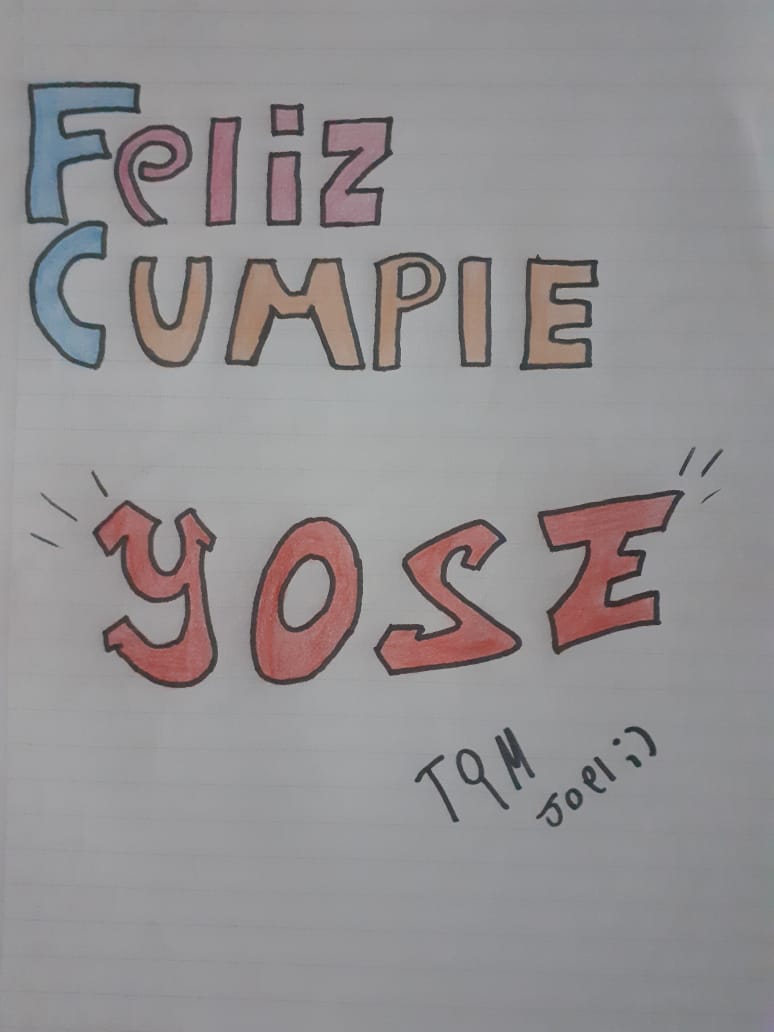 Feliz
CUMPIE
YOSE
TQM
Joel ;)